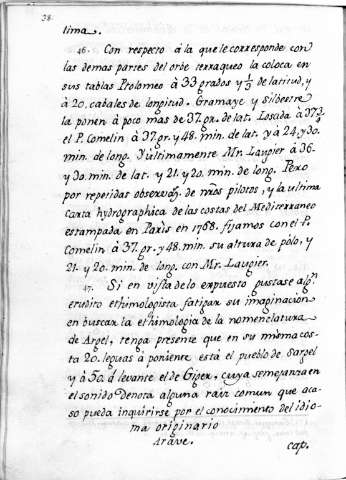 38.
tima.
46. Con respecto á la que le corresponde con
las demas partes del orbe terraqueo la coloca en
sus tablas Ptolomeo à 33 grados y 1/3 de latitud, y
à 20. cabales de longitud. Gramaye y Silbestre
la ponen à poco mas de 37. gr. de lat. Losada à 37 3/2
el P. Comelin à 37. gr. y 48. min. de lat. y à 24. y 30.
min. de long. Y ultimamente Mr. Laugier à 36.
y 30. min. de lat. y 21. y 20. min. de long. Pero
por repetidas observaz. de nros pilotos, y la ultima
carta hydrographica de las costas del Mediterraneo
estampada en Paris en 1768. fijamos con el P.
Comelin à 37. gr. y 48. min. su altura de pólo, y
21. y 20. min. de long. con Mr. Laugier.
47. Si en vista de lo expuesto gustase algn.
erudito ethimologista fatigar su imaginacion
en buscar la ethimologia de la nomenclatura
de Argel, tenga presente que en su misma cos-
ta 20. leguas à poniente está el pueblo de Sargel
y à 50. à levante el de Giger, cuya semejanza en
el sonido denota alguna raiz comun que aca-
so pueda inquirirse por el conocimiento del idio-
ma originario
Arave.
cap.